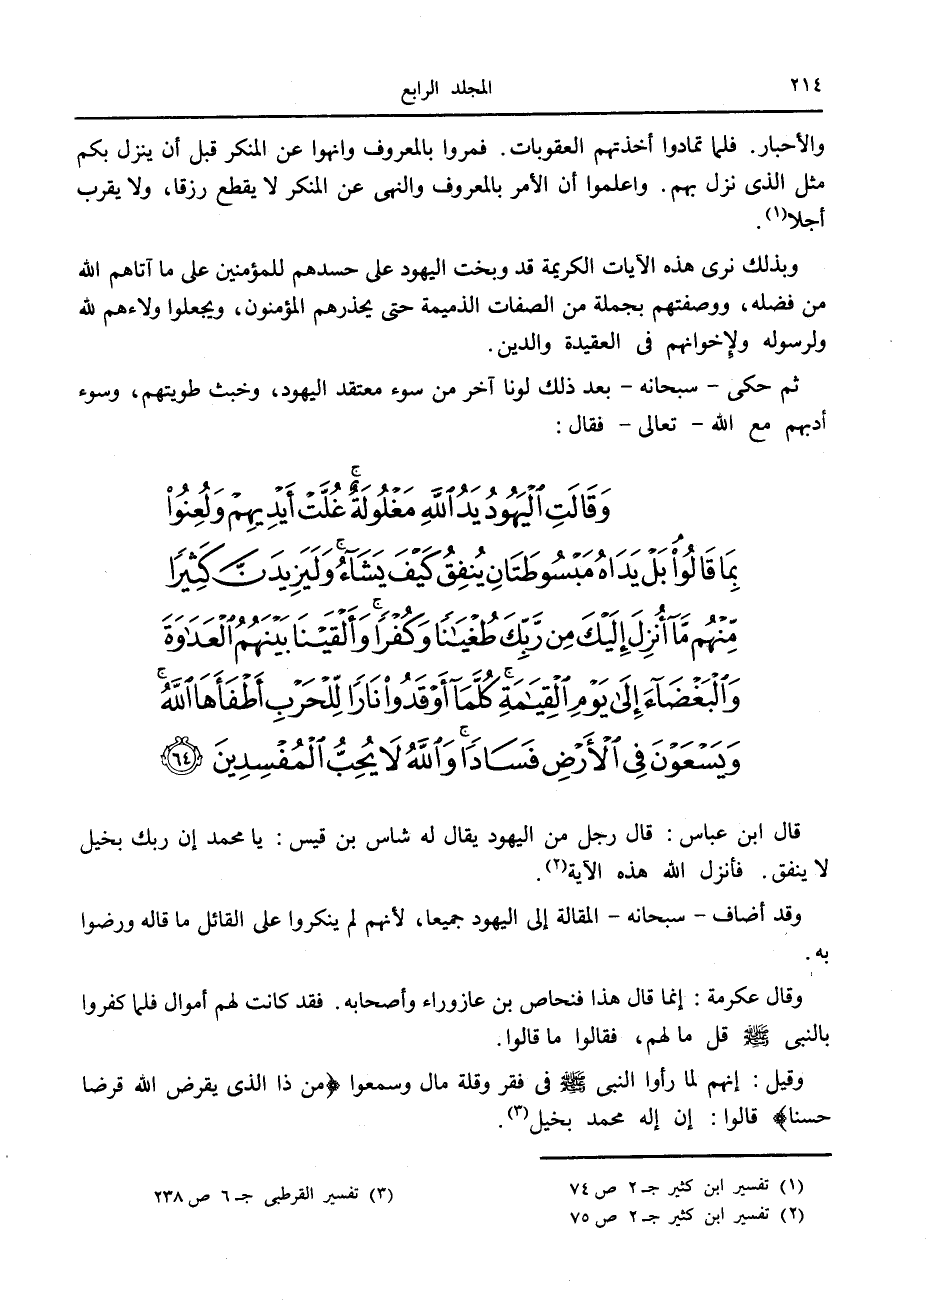 ٢١٤
المجلد الرابع
والأحبار. فلما تمادوا أخذتهم العقوبات. فمروا بالمعروف وانهوا عن المنكر قبل أن ينزل بكم
مثل الذى نزل بهم. واعلموا أن الأمر بالمعروف والنهى عن المنكر لا يقطع رزقا، ولا يقرب
أجلا(١).
وبذلك نرى هذه الآيات الكريمة قد وبخت اليهود على حسدهم للمؤمنين على ما آتاهم الله
من فضله، ووصفتهم بجملة من الصفات الذميمة حتى يحذرهم المؤمنون، ويجعلوا ولاءهم لله
ولرسوله ولإخوانهم فى العقيدة والدين.
ثم حكى - سبحانه - بعد ذلك لونا آخر من سوء معتقد اليهود، وخبث طويتهم، وسوء
أدبهم مع الله - تعالى - فقال :
وَقَالَتِ ٱلْيَهُودُ يَدُ ٱللَّهِ مَغْلُولَةٌ ۚ غُلَّتْ أَيْدِيهِمْ وَلُعِنُوا۟
بِمَا قَالُوا۟ ۘ بَلْ يَدَاهُ مَبْسُوطَتَانِ يُنفِقُ كَيْفَ يَشَآءُ ۚ وَلَيَزِيدَنَّ كَثِيرًا
مِّنْهُم مَّآ أُنزِلَ إِلَيْكَ مِن رَّبِّكَ طُغْيَـٰنًا وَكُفْرًا ۚ وَأَلْقَيْنَا بَيْنَهُمُ ٱلْعَدَٰوَةَ
وَٱلْبَغْضَآءَ إِلَىٰ يَوْمِ ٱلْقِيَـٰمَةِ ۚ كُلَّمَآ أَوْقَدُوا۟ نَارًا لِّلْحَرْبِ أَطْفَأَهَا ٱللَّهُ ۚ
وَيَسْعَوْنَ فِى ٱلْأَرْضِ فَسَادًا ۚ وَٱللَّهُ لَا يُحِبُّ ٱلْمُفْسِدِينَ ﴿٦٤﴾
قال ابن عباس : قال رجل من اليهود يقال له شاس بن قيس : يا محمد إن ربك بخيل
لا ينفق. فأنزل الله هذه الآية(٢).
وقد أضاف - سبحانه - المقالة إلى اليهود جميعا، لأنهم لم ينكروا على القائل ما قاله ورضوا
به.
وقال عكرمة : إنما قال هذا فنحاص بن عازوراء وأصحابه. فقد كانت لهم أموال فلما كفروا
بالنبى ﷺ قل ما لهم، فقالوا ما قالوا.
وقيل : إنهم لما رأوا النبى ﷺ فى فقر وقلة مال وسمعوا ﴿من ذا الذى يقرض الله قرضا
حسنا﴾ قالوا : إن إله محمد بخيل(٣).
(١) تفسير ابن كثير جـ ٢ ص ٧٤
(٢) تفسير ابن كثير جـ ٢ ص ٧٥
(٣) تفسير القرطبى جـ ٦ ص ٢٣٨